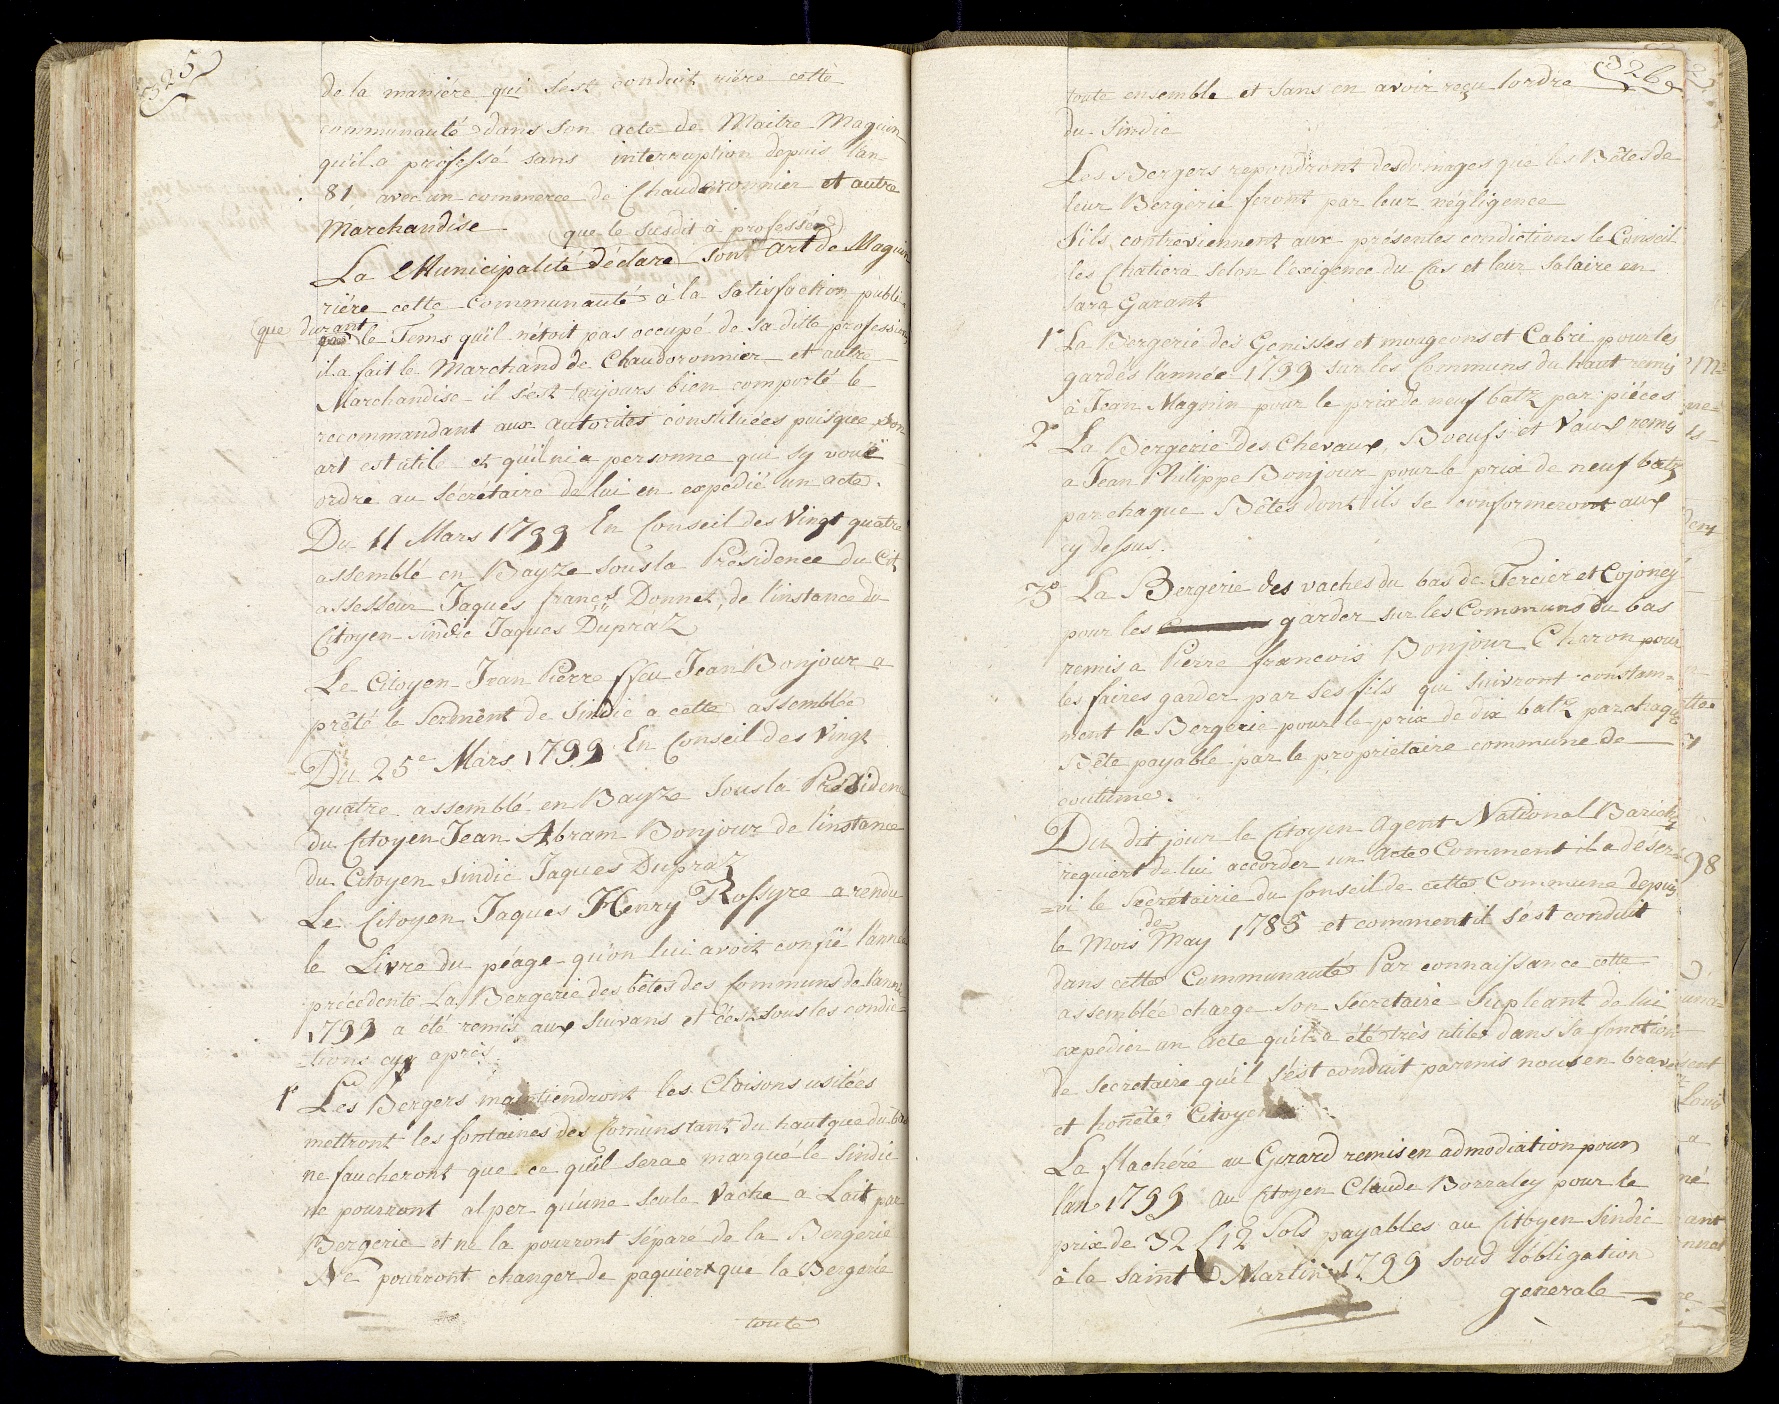 325
de la maniere qui s'est conduit riére cette
communauté dans son acte de Maitre Maguin
qu'il a professé sans interruption depuis l'an
81, avec un commerce de Chauderonnier et autre
Marchandise
(que le susdit à professée)
La Municipalité déclare son art de Maguin
riére cette communauté à la satisfaction publi-
(que durant le Tems quïl n'étoit pas occupé de sa ditte profession
il a fait le Marchand de Chaudoronnier et autre
Marchandise il s'est toujours bien comporté le
recommandant aux autorités constituées puisque son
art est utile et quïl ni a personne qui sy vouë
ordre au sécrétaire de lui en expedié un acte.
Du 11 Mars 1799 En Conseil des Vingt quatre
assemblé en Bayze sous la Présidence du Cit
assesseur Jaques franç.s Donnet, de l'instance du
Citoyen sindic Jaques Dupraz
Le Citoyen Jean Pierre ffeu Jean Bonjour a
prêté le Serment de Sindic a cette assemblée
Du 25e Mars 1799 En Conseil des Vingt
quatre assemblé en Bayze sous la Présidence
du Citoyen Jean Abram Bonjour de l'instance
du Citoyen sindic Jaques Dupraz
Le Citoyen Jaques Henry Rossyre a rendu
le Livre du péage qu'on lui avoit confïé l'année
précédente La Bergerie des bêtes des Communs de l'année
1799 a été remis aux suivans et c'est sous les condic=
=tions cy après.
1° Les Bergers maintiendront les Cloisons usitées
mettront les fontaines des Comuns tant du haut que du bas
ne faucheront que ce quïl serae marqué le Sindic
ne pourront alper qu'une seule Vache a Lait par
Bergerie et ne la pourront séparé de la Bergerie
Ne pourront changer de paquier que la Bergerie
toute
326
toute ensemble et sans en avoir reçu lordre
du Sindic
Les Bergers repondront des domages que les Bêtes de
leur Bergerie feront par leur négligence
Sils contreviennent aux présentes condictions le Conseil
les Chatiera selon l'exigence du Cas et leur salaire en
sara Garant
1° La Bergerie des Genisses et mougeons et Cabri pour les
gardes l'année 1799 sur les Communs du haut remis
à Jean Magnin pour le prix de neuf batz par piéces
2° La Bergerie des Chevaux, Boeufs et Vaux remis
a Jean Philippe Bonjour pour le prix de neuf batz
par chaque Bêtes dont ils se conformeront aux
cy dessus.
3° La Bergerie des vaches du bas de Tercier et Cojoney
pour les garder sur les Communs du bas
remis a Pierre francois Bonjour Charon pour
les faires garder par ses fils qui suivront constam=
ment la Bergerie pour le prix de dix batz par chaque
Bête payable par le proprietaire commune de
coutume.
Du dit jour le Citoyen Agent National Barich
requiert de lui accorder un acte Comment il a déser=
=vi le Secrétairie du Conseil de cette Commune depuis
le Mois de May 1785 et comment il s'est conduit
dans cette Communauté Par connaissance cette
assemblée charge son Secretaire Supleant de lui
expedier un acte qu'il a été très utile dans sa fonction
de Secretaire qu'il s'est conduit parmis nous en brave
et honéte Citoyen
La flachéré au Girard remis en admodiation pour
l'an 1799 au Citoyen Claude Borraley pour le
prix de 32 £ 12 Sols payables au Citoyen Sindic
à la saint Martin 1799 sous l'obligation
generale